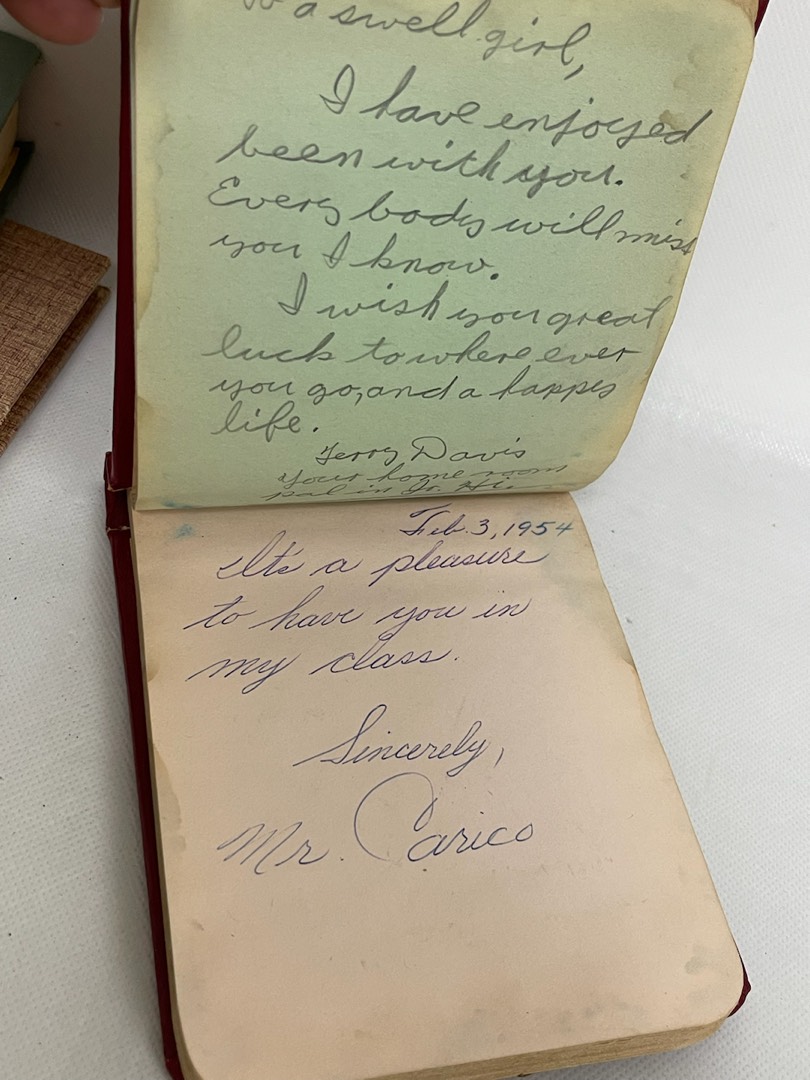 To a swell girl,
I have enjoyed
been with you.
Every body will miss
you I know.
I wish you great
luck to where ever
you go, and a happy
life.
Terry Davis
Your home room
pal in Jr. Hi.
Feb. 3, 1954
It's a pleasure
to have you in
my class.
Sincerely,
Mr. Carico